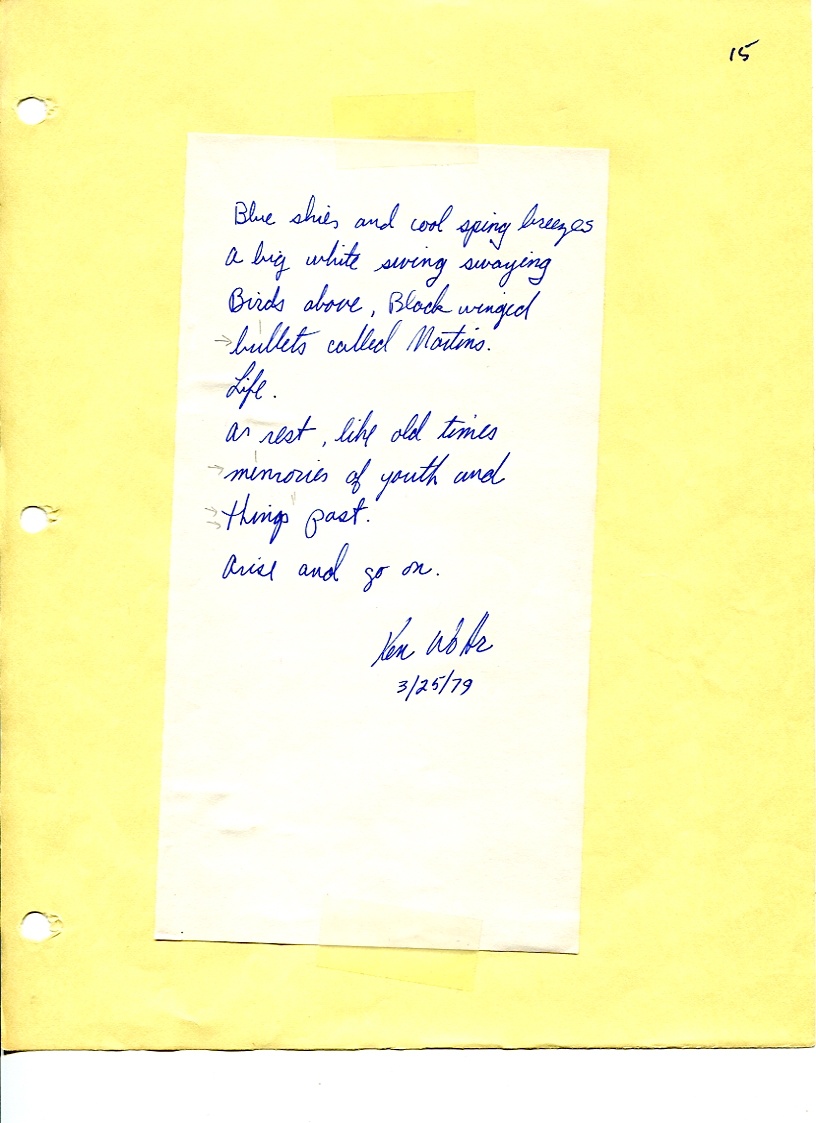 15
Blue skies and cool sping breezes
a big white swing swaying
Birds above, Black winged
bullets called Martins.
Life.
at rest, like old times
memories of youth and
things past.
arise and go on.
Ken
3/25/79